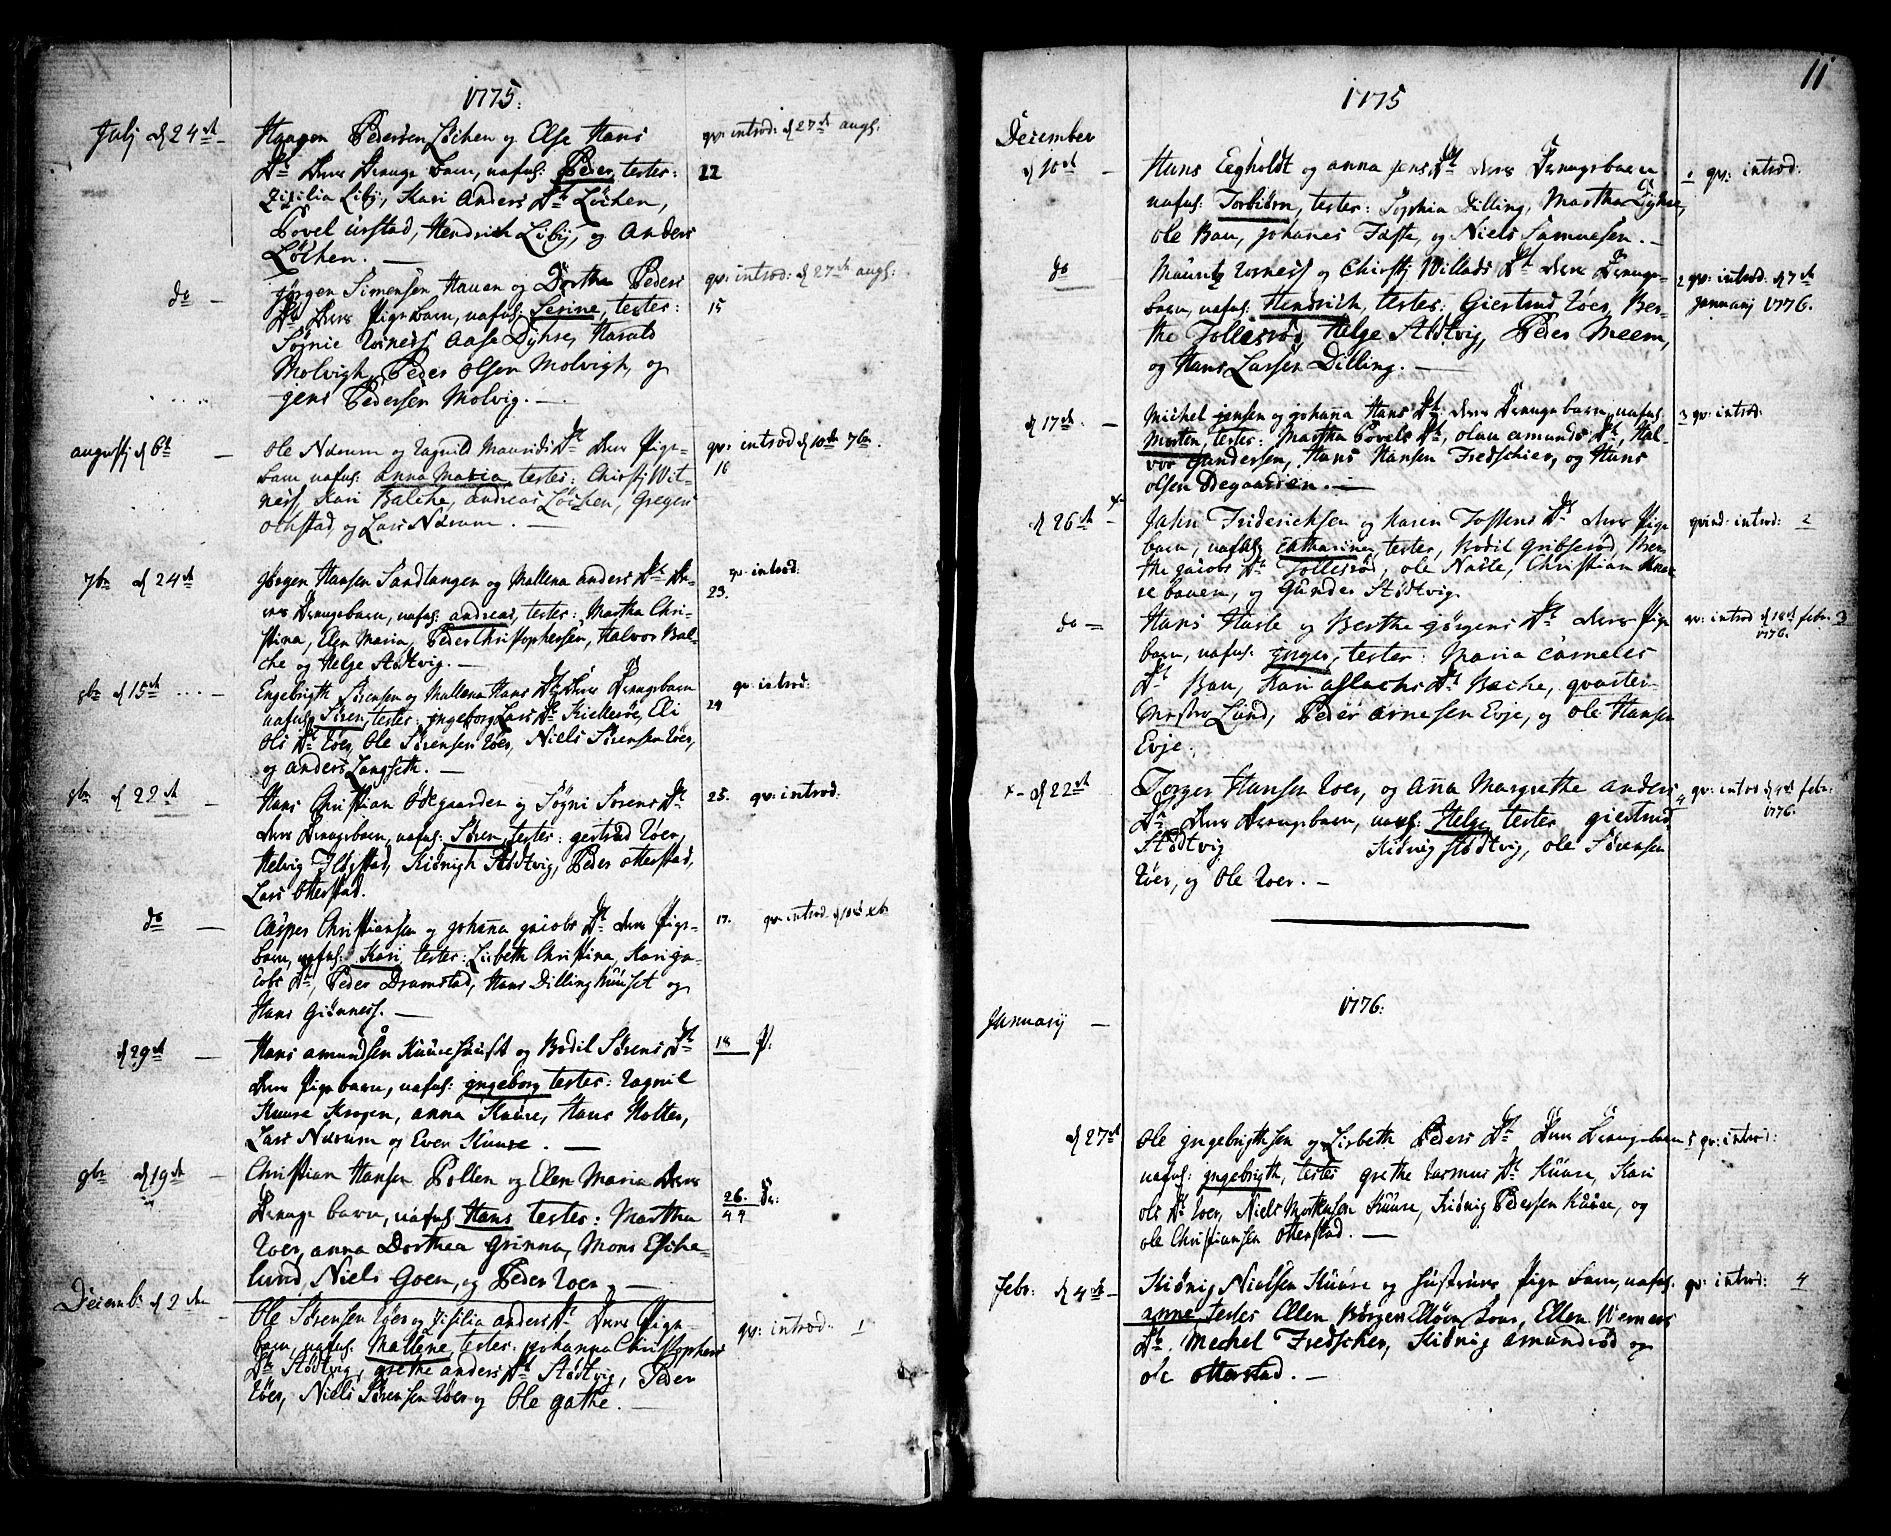 1775.
Julj d 24de - Haagen Pedersen Løchen og Else Hans
Dr Deres Drænge barn, nafnl: Peder, testes:
Zisilia Liby, Kari Anders Dr Løchen,
Povel urstad, Hendrich Liby, og Anders
Løchen. -
qv: introd: d 27de augs:
22
do - Jørgen Simensen Hauen og Dorthe Peders
Dr Deres Pige Barn, nafnl: Serine, testes:
Søgnie Aase Dyhre, Harald
Molvigh, Peder Olsen Molvigh, og
jens Pedersen Molvig. -
qv: introd: d 27de augs:
15
augustj d 6te - Ole Nærum og Ragnild Mauridsdr Deres Pige-
barn nafnl: anna Maria, testes: Christj Wit-
ness, Kari Balche, andreas Løchen, Gregers
ochstad, og Lars Nærum. -
qv: introd d 10de 7br.
16
7br d 24de gørgen Hansen Sandtangen og Mallena anders Dr De-
res Drængebarn, nafnl: andreas, testes: Martha Chri-
stina, Elen Maria, Peder Christophersen, Halvor Bal-
che og Helge Stødtvig. -
qv: introd:
23.
8br d 15de - Engebrigth Sørensen og Mallena Hans Dr Deres Drængebarn
nafnl: Søren, testes: jngeborg Lars Dr Kiellerøe, Eli
Ols Dr Roer, Ole Sørensen Roer, Niels Sørensen Roer,
og anders Langseth. -
qv: introd:
24
8br d 22de - Hans Christian Odegaarden og Søgni Sørens Dr
deres Drængebarn, nafnl: Søren, testes: gertrud Roer,
Helvig Ilogstad, Kiønigh Stødtvig, Peder otterstad,
Lars Otterstad.
25. qv: introd.
do - Casper Christiansen og johanna jacobs Dr deres Pige-
barn, nafnl: Kari, testes: Lisbeth Christina, Kari ja-
cobs Dr, Peder Dramstad, Hans Dilling huuset og
Hans Giønness. -
17. qv: introd. d 10de xbr
d 29de - Hans amundsen Kuurehuuset og Bodil Sørens Dr
deres Pige barn, nafnl: jngeborg testes: Ragnil
Kuure Krogen, anna Kuure, Hans Holter,
Lars Nærum og Even Kuure. -
18 P:
9br d 19de - Christian Hansen Pollen og Elen Maria deres
Drænge barn, nafnl: Hans testes: Martha
Roer, anna Dorthea Grinna, Mons Eske-
lund, Niels Goen, og Peder Roer -
26. Dr:
44
Decemb: d 2den Ole Sørensen Roer og Zisilia anders Dr Deres Pige-
barn, nafnl: Mallene, testes: johanna Christophers
Dr Stødtvig, grethe anders Dr Stødtvig, Peder
Roer, Niels Sørensen Roer og Ole gathe. -
qv: introd: 1
11
1775
December
d 10de - Hans Eegholdt og anna jens Dr deres Drængebarn
nafnl: Torbiørn, testes: Sophia Dilling, Martha Dyhre,
ole Bau, johanes Fæste, og Niels Samuelsen. -
1 qv: introd:
do - Mauritz og Christj Willads Dr deres Drænge-
barn, nafnl: Hendrich, testes: Giertrud Roer, Ber-
the Tollesrød, Helge Stødtvig, Peder Meem,
og Hans Larsen Dilling. -
2 qv: introd: d 7de
januarij 1776.
d 17de - Michel jensen og johana Hans Dr: deres Drængebarn, nafnl:
Morten, testes: Martha Povels Dr, olau amunds Dr, Hal-
vor Gundersen, Hans Hansen Fredschier, og Hans
olsen Odegaarden. -
3 qv: introd:
d 26de Jahn Friderichsen og Karen Tostens Dr deres Pige
barn, nafnl: Catharina, testes, Bodil Gribserød, Ber-
the jacobs Dr Tollesrød, ole Naste, Christian
bauen, og Gunder Stødtvig.
qvind: introd: 2
do - Hans Haste og Berthe gørgens Dr deres Pige
barn, nafnl: jnger, testes: Maria Carneles
Dr Bau, Kari aslachs Dr Bache, qvarter-
Mester Lund, Peder arnesen Evje, og ole Hansen
Evje.
qv: introd d 18de febr. 3
1776.
x - d 22de Torger Hansen Roer, og Anna Margrethe anders
Dr deres Drængebarn, nafnl: Helge testes giertrud
Stødtvig Kiønig stødtvig, ole Sørensen
Roer, og Ole Roer. -
4 qv: introd d 4de febr:
1776.
1776.
Januarij -
d 27de Ole jngebrigthsen og Lisbeth Peders Dr, Deres Drængebarn
nafnl: jngebrigth, testes grethe Rasmus Dr Kuure, Kari
ols Dr Roer, Niels Mortensen Kuure, Kiønig Pedersen Kuure, og
ole Christiansen otterstad. -
5 qv: introd:
febr: d 4de Kiønig Nielsen Kuure og Hustrues Pige barn, nafnl:
anne testes Ellen Børgers Ellen Werners
Dr. Mechel Fredschier, Kiønig amundrød og
ole otterstad. -
qv: introd: 4